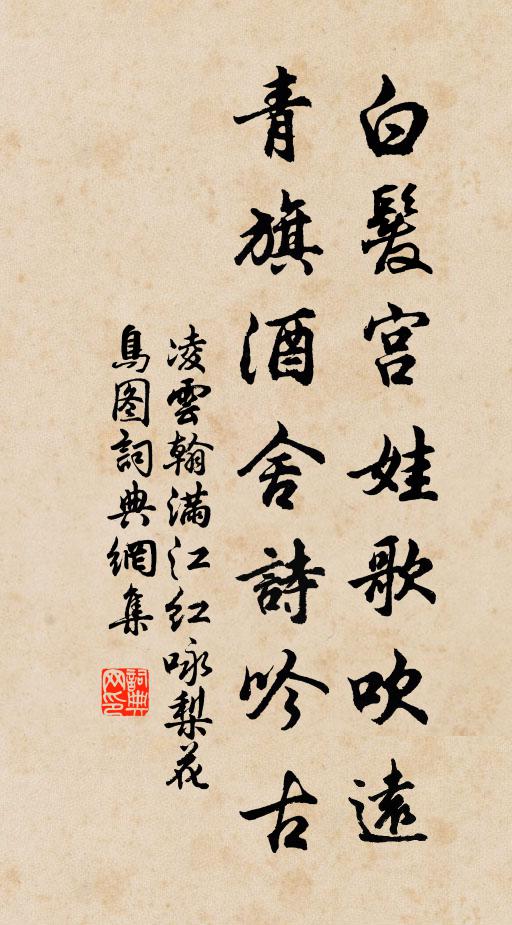 白髮宮娃歌吹遠
青旗酒舍詩吟古
凌雲翰滿江红咏梨花
鳥图詞典網集
詞典网印